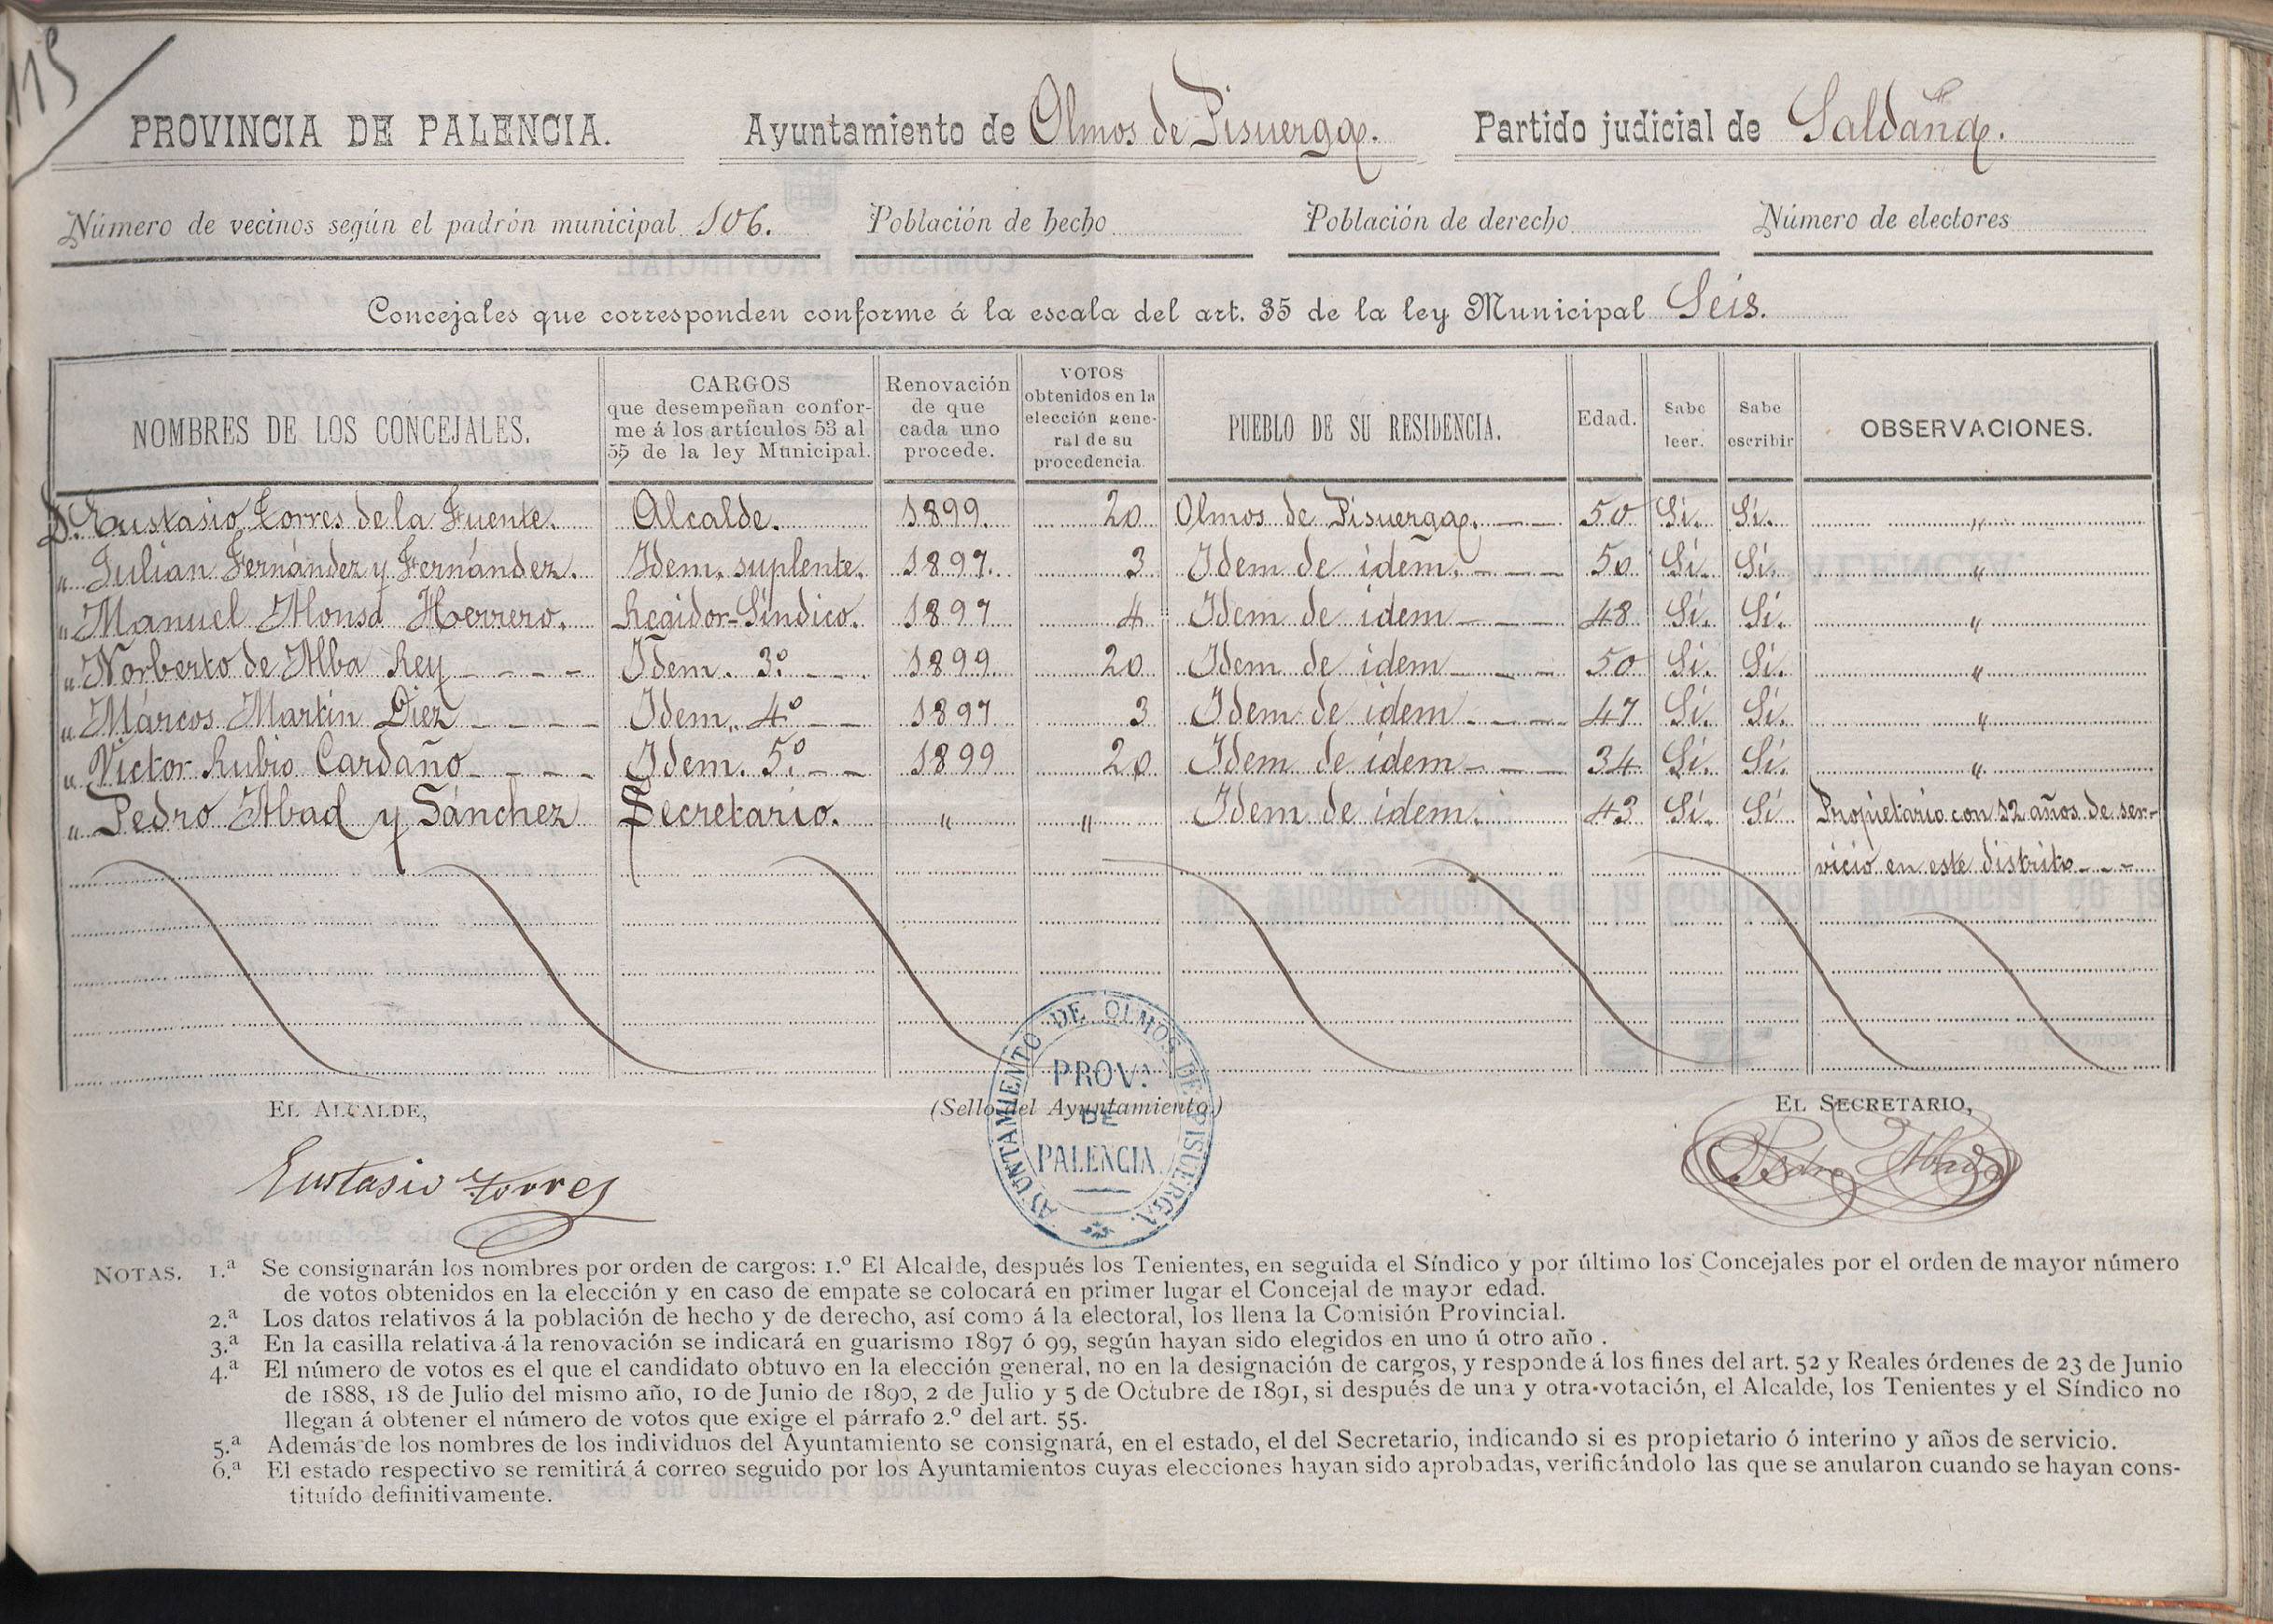 115
PROVINCIA DE PALENCIA. Ayuntamiento de Olmos de Pisuerga. Partido judicial de Saldaña.
Número de vecinos según el padrón municipal 106. Población de hecho Población de derecho Número de electores
Concejales que corresponden conforme á la escala del art. 35 de la ley Municipal Seis.
NOMBRES DE LOS CONCEJALES. CARGOS que desempeñan confor- me á los artículos 53 al 55 de la ley Municipal. Renovación de que cada uno procede. VOTOS obtenidos en la elección gene- ral de su procedencia. PUEBLO DE SU RESIDENCIA. Edad. Sabe leer. Sabe escribir OBSERVACIONES.
D. Eustasio Torres de la Fuente. Alcalde. 1899. 20 Olmos de Pisuerga. 50 Si. Si. "
" Julián Fernández y Fernández. Idem. suplente. 1897. 3 Idem de idem. 50 Si. Si. "
" Manuel Alonso Herrero. Regidor-Síndico. 1897 4 Idem de idem 48 Si. Si. "
" Norberto de Alba Rey Idem. 3º 1899 20 Idem de idem 50 Si. Si. "
" Márcos Martín Diez Idem. 4º 1897 3 Idem de idem 47 Si. Si. "
" Victor Rubio Cardaño Idem. 5.º 1899 20 Idem de idem 34 Si. Si. "
" Pedro Abad y Sánchez Secretario. " " Idem de idem. 43 Si. Si Propietario con 12 años de ser-
vicio en este distrito
EL ALCALDE, (Sello del Ayuntamiento.) EL SECRETARIO,
AYUNTAMIENTO DE OLMOS DE PISUERGA.
PROV.ª
DE
PALENCIA.
Eustasio Torres Pedro Abad
NOTAS. 1.ª Se consignarán los nombres por orden de cargos: 1.º El Alcalde, después los Tenientes, en seguida el Síndico y por último los Concejales por el orden de mayor número
de votos obtenidos en la elección y en caso de empate se colocará en primer lugar el Concejal de mayor edad.
2.ª Los datos relativos á la población de hecho y de derecho, así como á la electoral, los llena la Comisión Provincial.
3.ª En la casilla relativa á la renovación se indicará en guarismo 1897 ó 99, según hayan sido elegidos en uno ú otro año .
4.ª El número de votos es el que el candidato obtuvo en la elección general, no en la designación de cargos, y responde á los fines del art. 52 y Reales órdenes de 23 de Junio
de 1888, 18 de Julio del mismo año, 10 de Junio de 1890, 2 de Julio y 5 de Octubre de 1891, si después de una y otra votación, el Alcalde, los Tenientes y el Síndico no
llegan á obtener el número de votos que exige el párrafo 2.º del art. 55.
5.ª Además de los nombres de los individuos del Ayuntamiento se consignará, en el estado, el del Secretario, indicando si es propietario ó interino y años de servicio.
6.ª El estado respectivo se remitirá á correo seguido por los Ayuntamientos cuyas elecciones hayan sido aprobadas, verificándolo las que se anularon cuando se hayan cons-
tituído definitivamente.